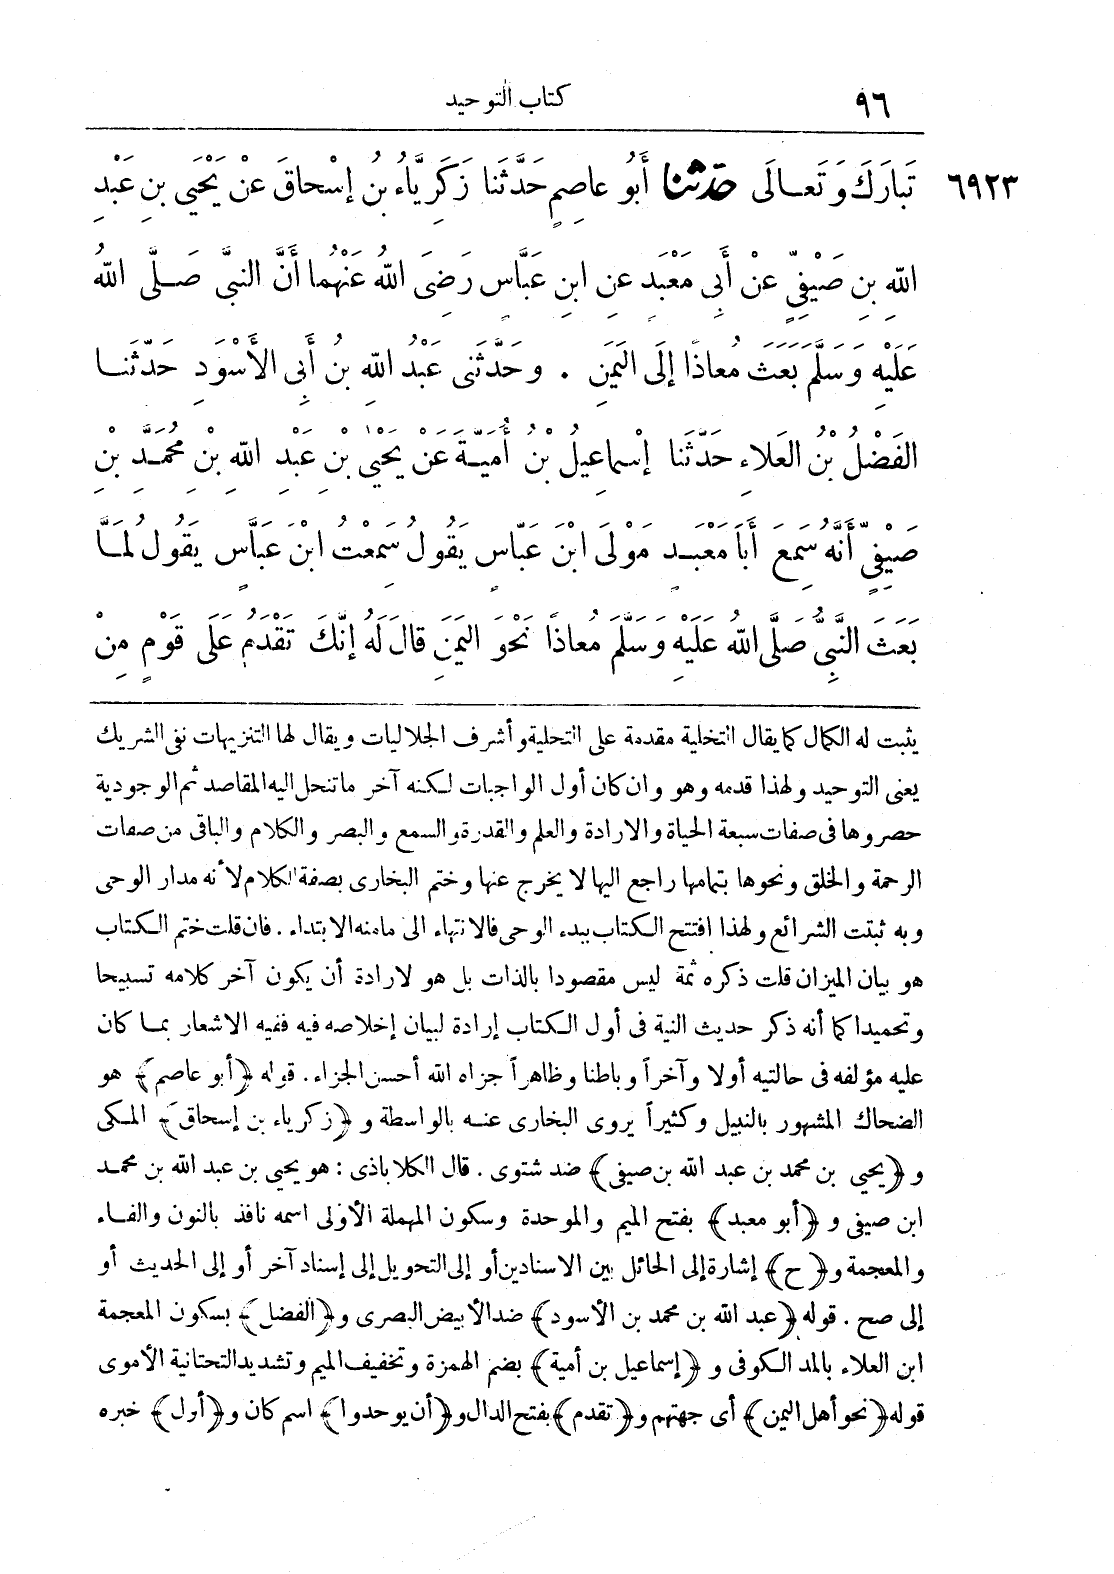 ٩٦ كتاب التوحيد
٦٩٢٣ تَبَارَكَ وَتَعَالَى حَدَّثَنَا أَبُو عَاصِمٍ حَدَّثَنَا زَكَرِيَّاءُ بنُ إسْحاقَ عَنْ يَحْيَى بنِ عَبْدِ
اللّٰهِ بنِ صَيْفِيٍّ عنْ أَبِي مَعْبَدٍ عنِ ابنِ عَبَّاسٍ رَضِىَ اللّٰهُ عَنْهُما أَنَّ النبىَّ صَلَّى اللّٰهُ
عَلَيْهِ وَسَلَّمَ بَعَثَ مُعاذًا إلَى الَيَمَنِ . وحَدَّثنى عَبْدُ اللّٰهِ بنُ أَبى الأَسْوَدِ حَدَّثَنَا
الفَضْلُ بْنُ العَلَاءِ حَدَّثَنا إسْماعِيلُ بْنُ أُمَيَّةَ عَنْ يَحْيَى بْنِ عَبْدِ اللّٰهِ بْنِ مُحَمَّدِ بْنِ
صَيْفِيٍّ أَنَّهُ سَمِعَ أَبَا مَعْبَدٍ مَوْلَى ابْنِ عَبَّاسٍ يَقُولُ سَمِعْتُ ابْنَ عَبَّاسٍ يَقُولُ لَمَّا
بَعَثَ النَّبِىُّ صَلَّى اللّٰهُ عَلَيْهِ وَسَلَّمَ مُعاذًا نَحْوَ اليَمَنِ قالَ لَهُ إنَّكَ تَقْدَمُ عَلَى قَوْمٍ مِنْ
يثبت له الكمال كما يقال التخلية مقدمة على التحلية وأشرف الجلاليات ويقال لها التنزيهات نفى الشريك
يعنى التوحيد ولهذا قدمه وهو وان كان أول الواجبات لكنه آخر ما تنحل اليه المقاصد ثم الوجودية
حصروها فى صفات سبعة الحياة والارادة والعلم والقدرة والسمع والبصر والكلام والباقى من صفات
الرحمة والخلق ونحوها بتمامها راجع اليها لا يخرج عنها وختم البخارى بصفة الكلام لأنه مدار الوحى
وبه ثبتت الشرائع ولهذا افتتح الكتاب ببدء الوحى فالانتهاء الى مامنه الابتداء . فان قلت ختم الكتاب
هو بيان الميزان قلت ذكره ثمة ليس مقصودا بالذات بل هو لارادة أن يكون آخر كلامه تسبيحا
وتحميدا كما أنه ذكر حديث النية فى أول الكتاب إرادة لبيان إخلاصه فيه ففيه الاشعار بما كان
عليه مؤلفه فى حالتيه أولا وآخراً وباطنا وظاهراً جزاه الله أحسن الجزاء. قوله ﴿أبو عاصم﴾ هو
الضحاك المشهور بالنبيل وكثيراً يروى البخارى عنه بالواسطة و ﴿زكرياء بن إسحاق﴾ المكى
و ﴿يحيى بن محمد بن عبد الله بن صيفى﴾ ضد شتوى . قال الكلاباذى : هو يحيى بن عبد الله بن محمد
ابن صيفى و ﴿أبو معبد﴾ بفتح الميم والموحدة وسكون المهملة الأولى اسمه نافذ بالنون والفاء
والمعجمة و ﴿ح﴾ إشارة إلى الحائل بين الاسنادين أو إلى التحويل إلى إسناد آخر أو إلى الحديث أو
إلى صح . قوله ﴿عبد الله بن محمد بن الأسود﴾ ضد الأبيض البصرى و ﴿الفضل﴾ بسكون المعجمة
ابن العلاء بالمد الكوفى و ﴿إسماعيل بن أمية﴾ بضم الهمزة وتخفيف الميم وتشديد التحتانية الأموى
قوله ﴿نحو أهل اليمن﴾ أى جهتهم و ﴿تقدم﴾ بفتح الدال و ﴿أن يوحدوا﴾ اسم كان و ﴿أول﴾ خبره